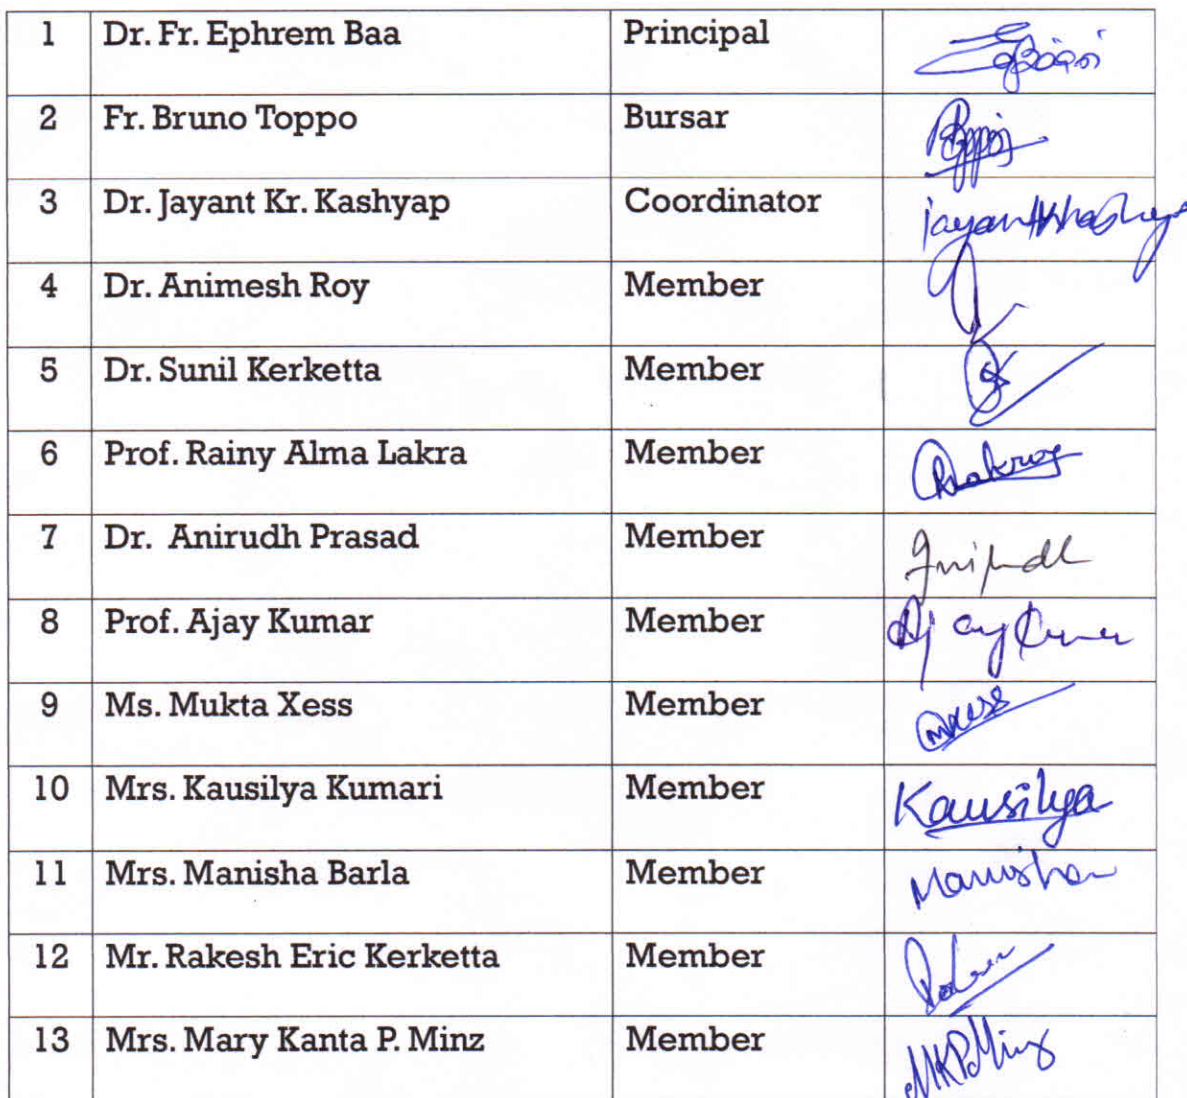 1 Dr. Fr. Ephrem Baa Principal
2 Fr. Bruno Toppo Bursar
3 Dr. Jayant Kr. Kashyap Coordinator jayantkkashyap
4 Dr. Animesh Roy Member
5 Dr. Sunil Kerketta Member
6 Prof. Rainy Alma Lakra Member
7 Dr. Anirudh Prasad Member
8 Prof. Ajay Kumar Member Ajay Kumar
9 Ms. Mukta Xess Member mxess
10 Mrs. Kausilya Kumari Member Kausilya
11 Mrs. Manisha Barla Member Manisha
12 Mr. Rakesh Eric Kerketta Member
13 Mrs. Mary Kanta P. Minz Member MKPMinz